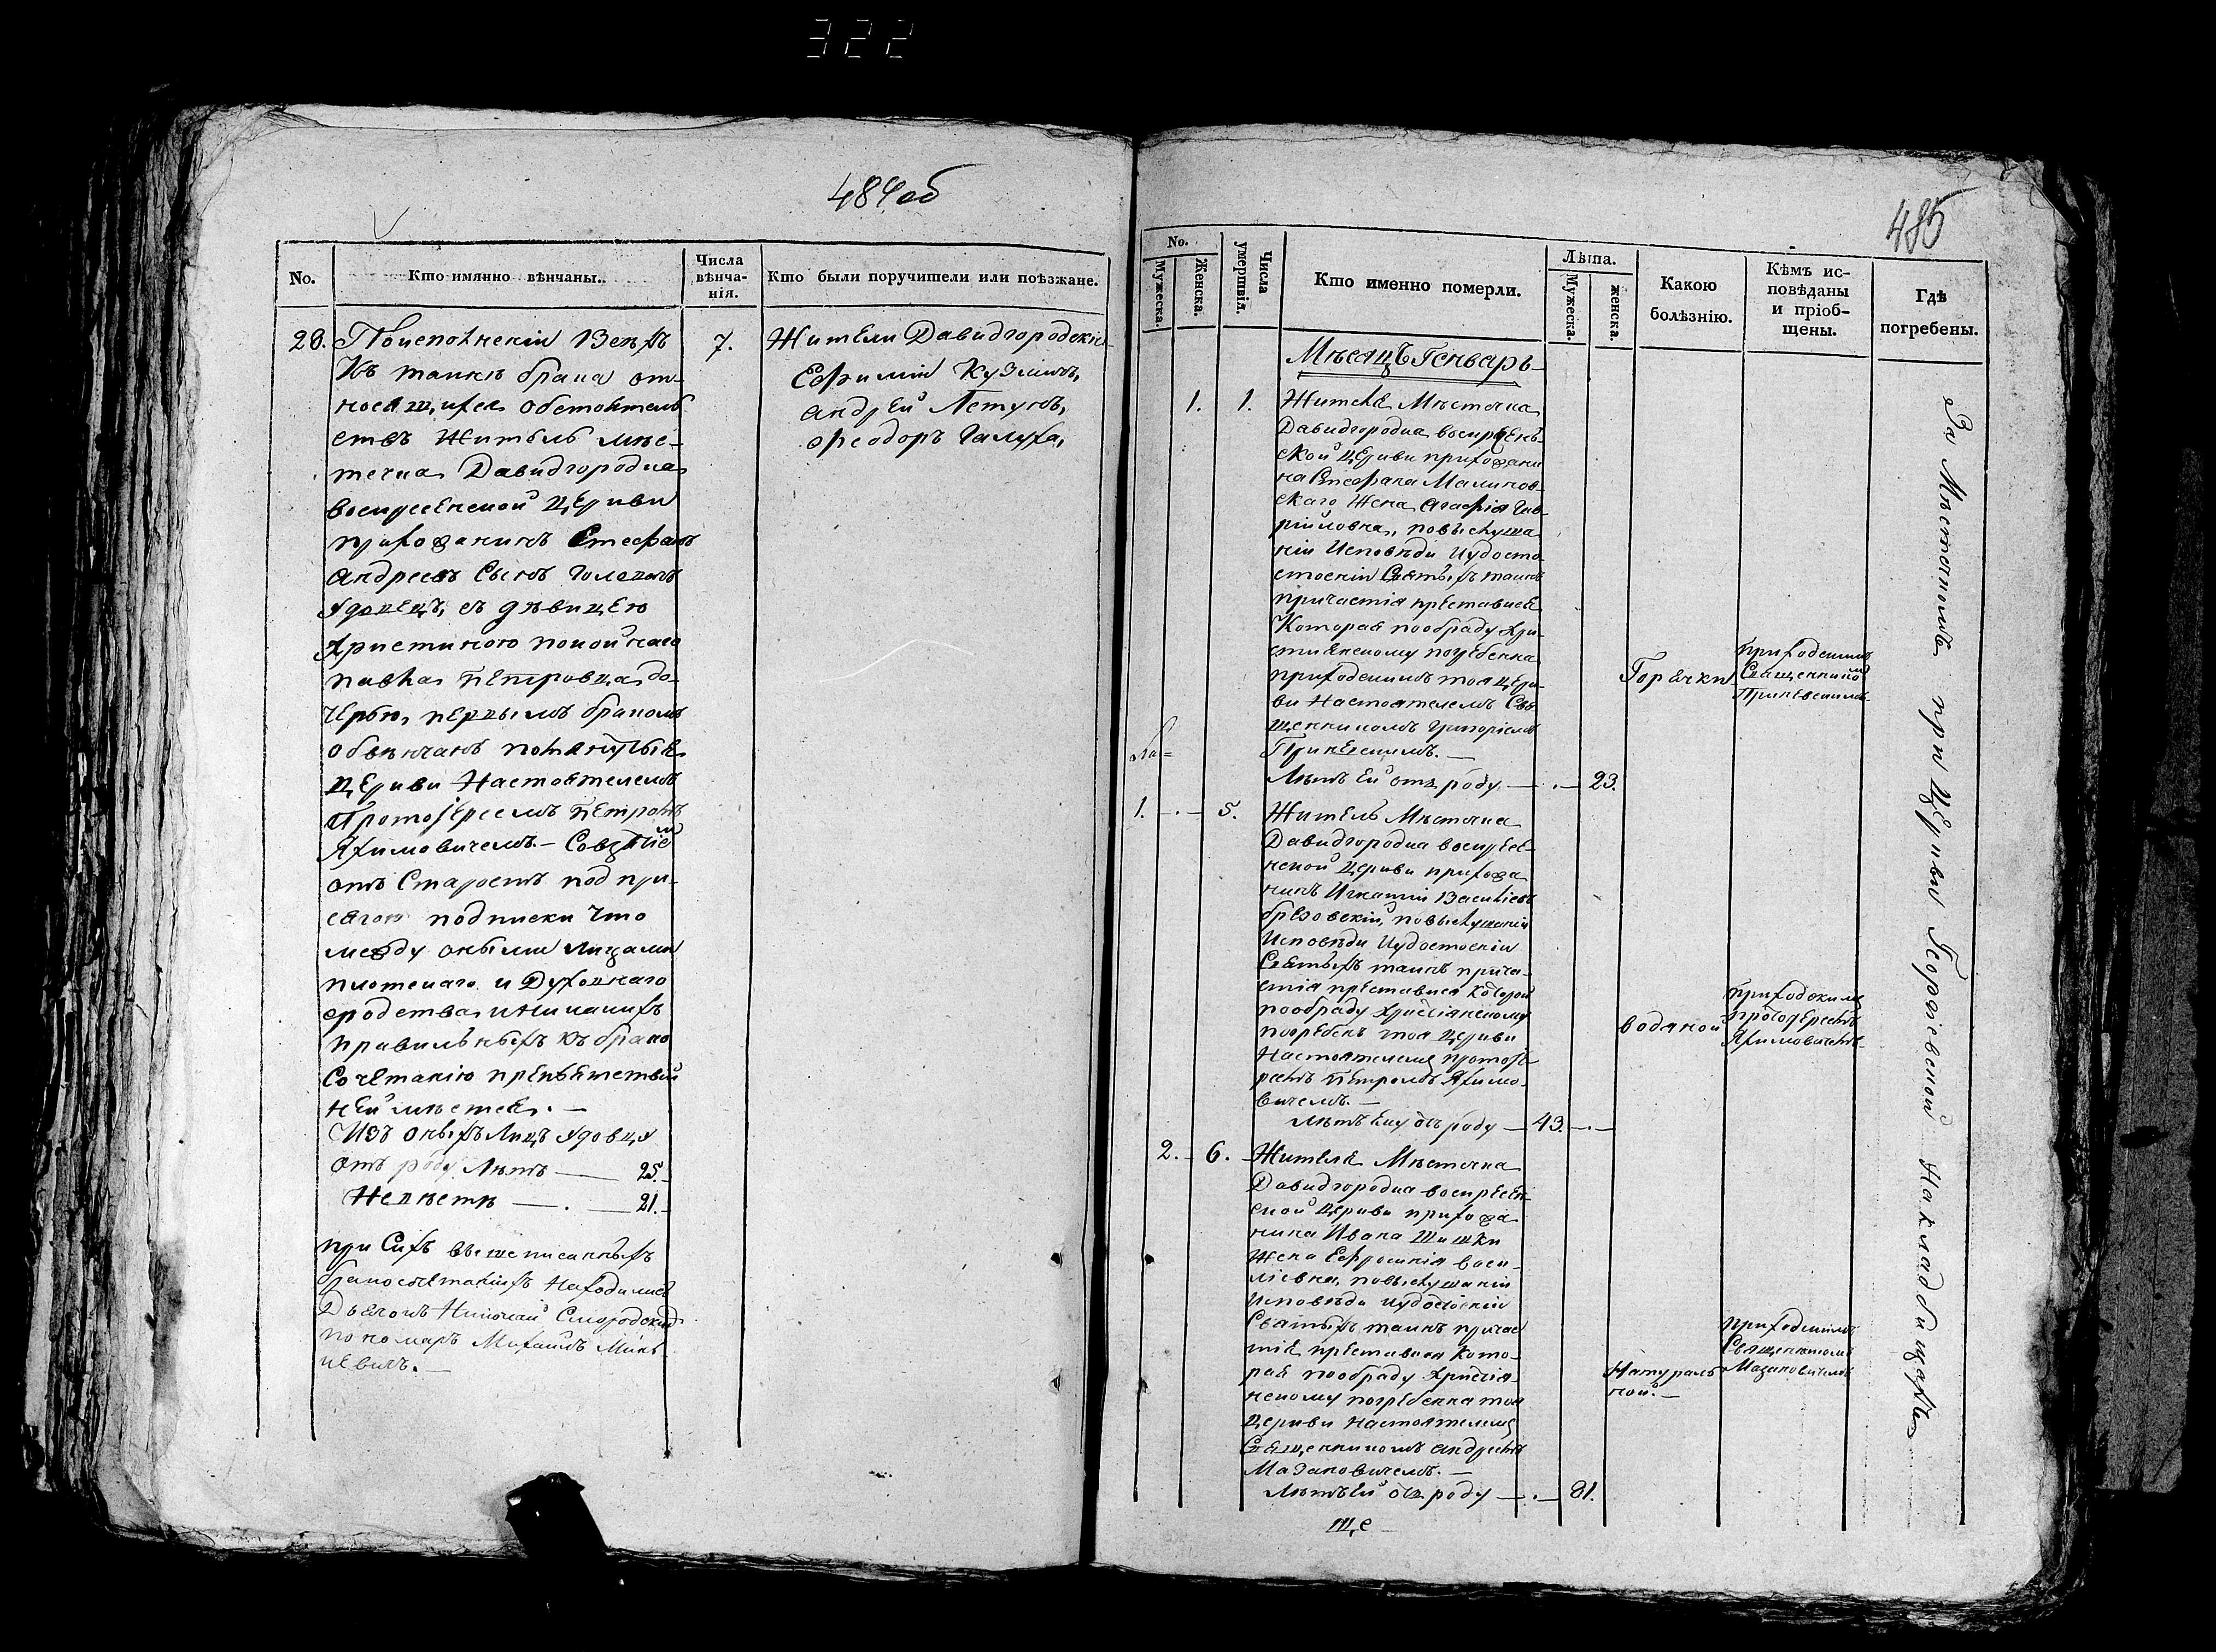 322
484об
No.
Кто имянно вѣнчаны.
Числа
вѣнча-
нія.
Кто были поручители или поѣзжане.
28.
По исполненіи Всехъ
Къ таинѣ брака от-
носящихся обстоятель
ствъ Житель мѣс-
течка Давидгородка
воскресенской церкви
прихожанинъ Стефанъ
Андреевъ Сынъ
Удовецъ, съ девицею
Христиною покойнаго
Павла Петровца до-
черью, первымъ бракомъ
обвѣнчанъ
церкви Настоятелемъ
Протоіереемъ Петромъ
Яхимовичемъ. — Совзятіем
отъ Старостъ под при-
сягою подписки что
между оными лицами
плотскаго и Духовнаго
сродства и никакихъ
правильныхъ къ брако
Сочетанію препятствій
не имѣется. —
Изъ оныхъ лицъ удовцу
отъ роду Лѣтъ — 25. —
Невѣстѣ — . — 21. —
при Сихъ вышеписанныхъ
бракосочетаніяхъ Находились
Дьяконъ Николай Смородский
пономаръ Михаилъ Миць-
кевичъ. —
7.
Жители Давидгородские
Ефимій Кузмичъ,
Андрей Летунъ,
Феодоръ Галуха,
485
No.
Мужеска.
Женска.
Числа
умертвія.
Кто именно померли.
Лѣта.
Мужеска.
женска.
Какою
болѣзнію.
Кѣмъ ис-
повѣданы
и пріоб-
щены.
Гдѣ
погребены.
Мѣсяцъ Генварь
1. 1.
Жителя Мѣстечка
Давидгородка воскресен-
ской церкви прихожани
на Стефана Малинов-
скаго Жена Агафія Гав-
рійловна, повыслуша
ніи Исповѣди Иудосто
стоеніи Святыхъ таинъ
причастія преставися
Которая пообряду Хри-
стиянскому погребенна
приходскимъ тоя церк-
ви Настоятелемъ Свя
щенникомъ Григоріемъ
Лѣтъ Ей отъ роду — . — 23.
Горячки
приходскимъ
Священником
1. — . — 5.
Житель Мѣстечка
Давидгородка воскресе-
нской церкви прихожа
нинъ Игнатій Василіевъ
брезовскій, повыслушаніи
Исповѣди Иудостоеніи
Святыхъ таинъ прича-
стія преставися Который
пообряду Христіянскому
погребенъ тоя церкви
Настоятелемъ протоіе-
реемъ Петромъ Яхимо-
вичемъ. —
Лѣтъ Ему отъ роду — 43. — . —
водяной
приходскимъ
протоіереемъ
Яхимовичемъ
2. — 6. —
Жителя Мѣстечка
Давидгородка воскресен-
ской церкви прихожа
нина Ивана Шишки
Жена Ефросинія Васи-
ліевна, повыслушаніи
Исповѣди иудостоеніи
Святыхъ таинъ причас
тія преставися Кото-
рая пообряду Христія-
нскому погребенна тоя
церкви настоятелемъ
Священникомъ Андреемъ
Мазановичемъ. —
Лѣтъ Ей отъ роду — . — 81.
Натураль
ной. —
приходскимъ
Священникомъ
Мазановичемъ
ще
За Мѣстечкомъ при Церкви Георгіевской На кладбищахъ